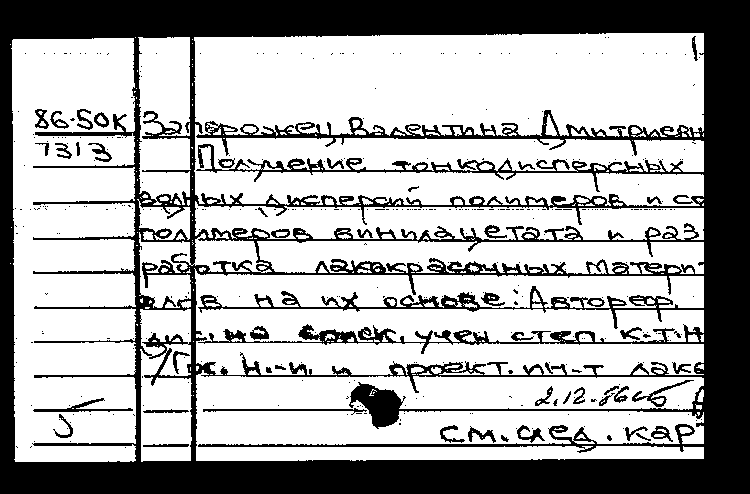 86-50К Запорожец, Валентина Дмитриевн
7313 Получение тонкодисперсных
водных дисперсий полимеров и со
полимеров винилацетата и раз
работка лакокрасочных матери
алов на их основе: Автореф.
дис. на соиск. учен степ. к.т.н
/Гос. н.-и. и проект. ин-т лако
2.12.86
см. след. кар